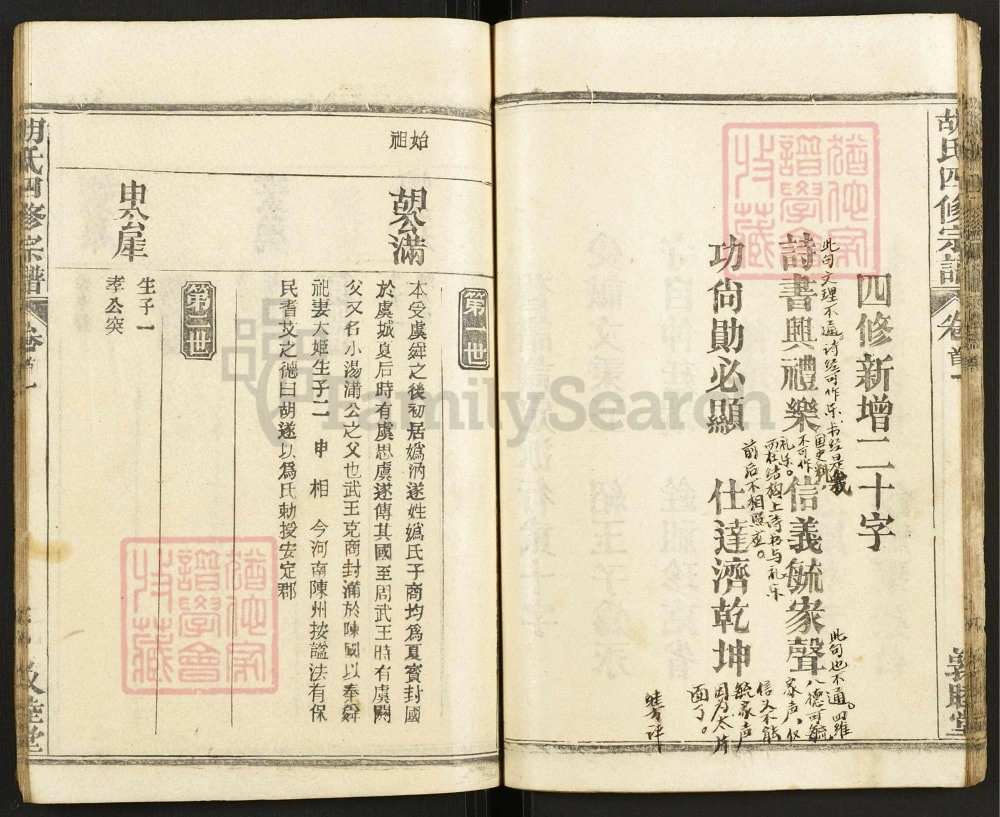 胡氏四修宗譜
卷首一
義睦堂
四修新增二十字
詩書興禮樂 信義毓家聲
功尙勛必顯 仕達濟乾坤
此句文理不通。诗经可作乐、书经是
國史,
不可作
礼乐。
而在结构上诗书与礼乐
前后不相照应。
此句也不通。四維
八德可毓
家声,仅
信义不能
毓家声
因为太片
面了。
猶他家
譜學會
收藏
FamilySearch
始祖
第一世
胡公滿
本受虞舜之後初居嬀汭遂姓嬀氏子商均爲夏賓封國
於虞城夏后時有虞思虞遂傳其國至周武王時有虞閼
父又名小湯滿公之父也武王克商封滿於陳國以奉舜
祀妻大姬生子二 申 相 今河南陳州按謚法有保
民耆艾之德曰胡遂以爲氏勅授安定郡
第二世
申公犀
生子一
孝公突
猶他家
譜學會
收藏
胡氏四修宗譜
卷首一
義睦堂